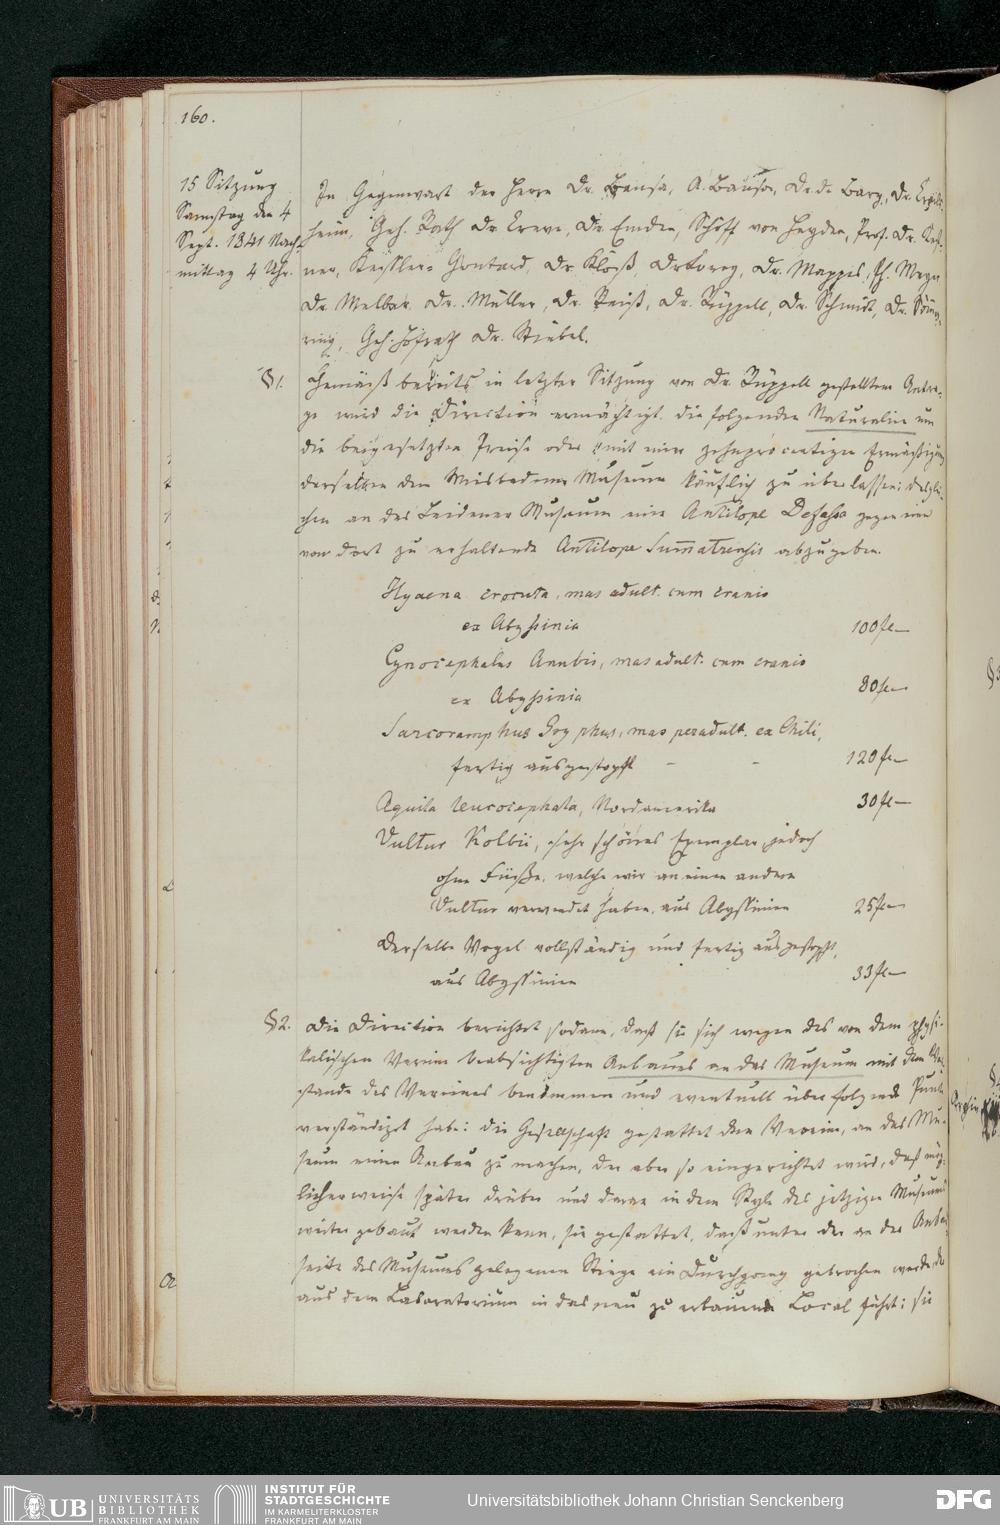 160.
15 Sitzung
Samstag den 4
Sept. 1841 Nach-
mittag 4 Uhr.
In Gegenwart der Herrn Dr. Bansa, A. Bansa, Dr. de Bary, Dr.
heim, Geh. Rath Dr. Creve, Dr. Emden, Schöff von Heyden, Prof. Dr.
ner, Keissler-Gontard, Dr. Kloß, Dr. Lorey, Dr. Mappes, H. Meyer
Dr. Melber, Dr. Müller, Dr. Reiß, Dr. Rüppell, Dr. Schmidt, Dr. Sömme-
ring, Geh. Hofrath Dr. Stiebel.
§1. Gemäß bereits in letzter Sitzung von Dr. Rüppell gestelltem Antra-
ge wird die Direction ermächtigt die folgenden Naturalien um
die beigesetzten Preise oder mit einer zehnprocentigen Ermäßigung
derselben dem Wiesbadener Museum käuflich zu überlassen; desglei-
chen an das Leidener Museum eine Antilope Defassa gegen eine
von dort zu erhaltende Antilope Sumatrensis abzugeben.
Hyaena crocuta, mas adult. cum cranio
ex Abyssinia 100 fl —
Cynocephalus Anubis, mas adult. cum cranio
ex Abyssinia 80 fl —
Sarcoramphus Gryphus, mas peradult. ex Chili,
fertig ausgestopft — — 120 fl —
Aquila leucocephala, Nordamerika 30 fl —
Vultur Kolbii, sehr schönes Exemplar, jedoch
ohne Füße, welche wir an einen andern
Vultur verwendet haben, aus Abyssinien 25 fl —
Derselbe Vogel vollständig und fertig ausgestopft,
aus Abyssinien 33 fl —
§2. Die Direction berichtet sodann, daß sie sich wegen des von dem physi-
kalischen Verein beabsichtigten Anbaues an das Museum mit dem Vor-
stande des Vereines benommen und eventuell über folgende Punkte
verständigt habe: die Gesellschaft gestattet dem Verein, an das Mu-
seum einen Anbau zu machen, der aber so eingerichtet wird, daß mög-
licherweise später drüber und daran in dem Style des jetzigen Museums
weiter gebaut werden kann, sie gestattet, daß unter der an der
seite des Museums gelegenen Stiege ein Durchgang gebrochen werde, der
aus dem Laboratorium in das neu zu erbauende Local führt; sie
UB UNIVERSITÄTS
BIBLIOTHEK
FRANKFURT AM MAIN
INSTITUT FÜR
STADTGESCHICHTE
IM KARMELITERKLOSTER
FRANKFURT AM MAIN
Universitätsbibliothek Johann Christian Senckenberg
DFG